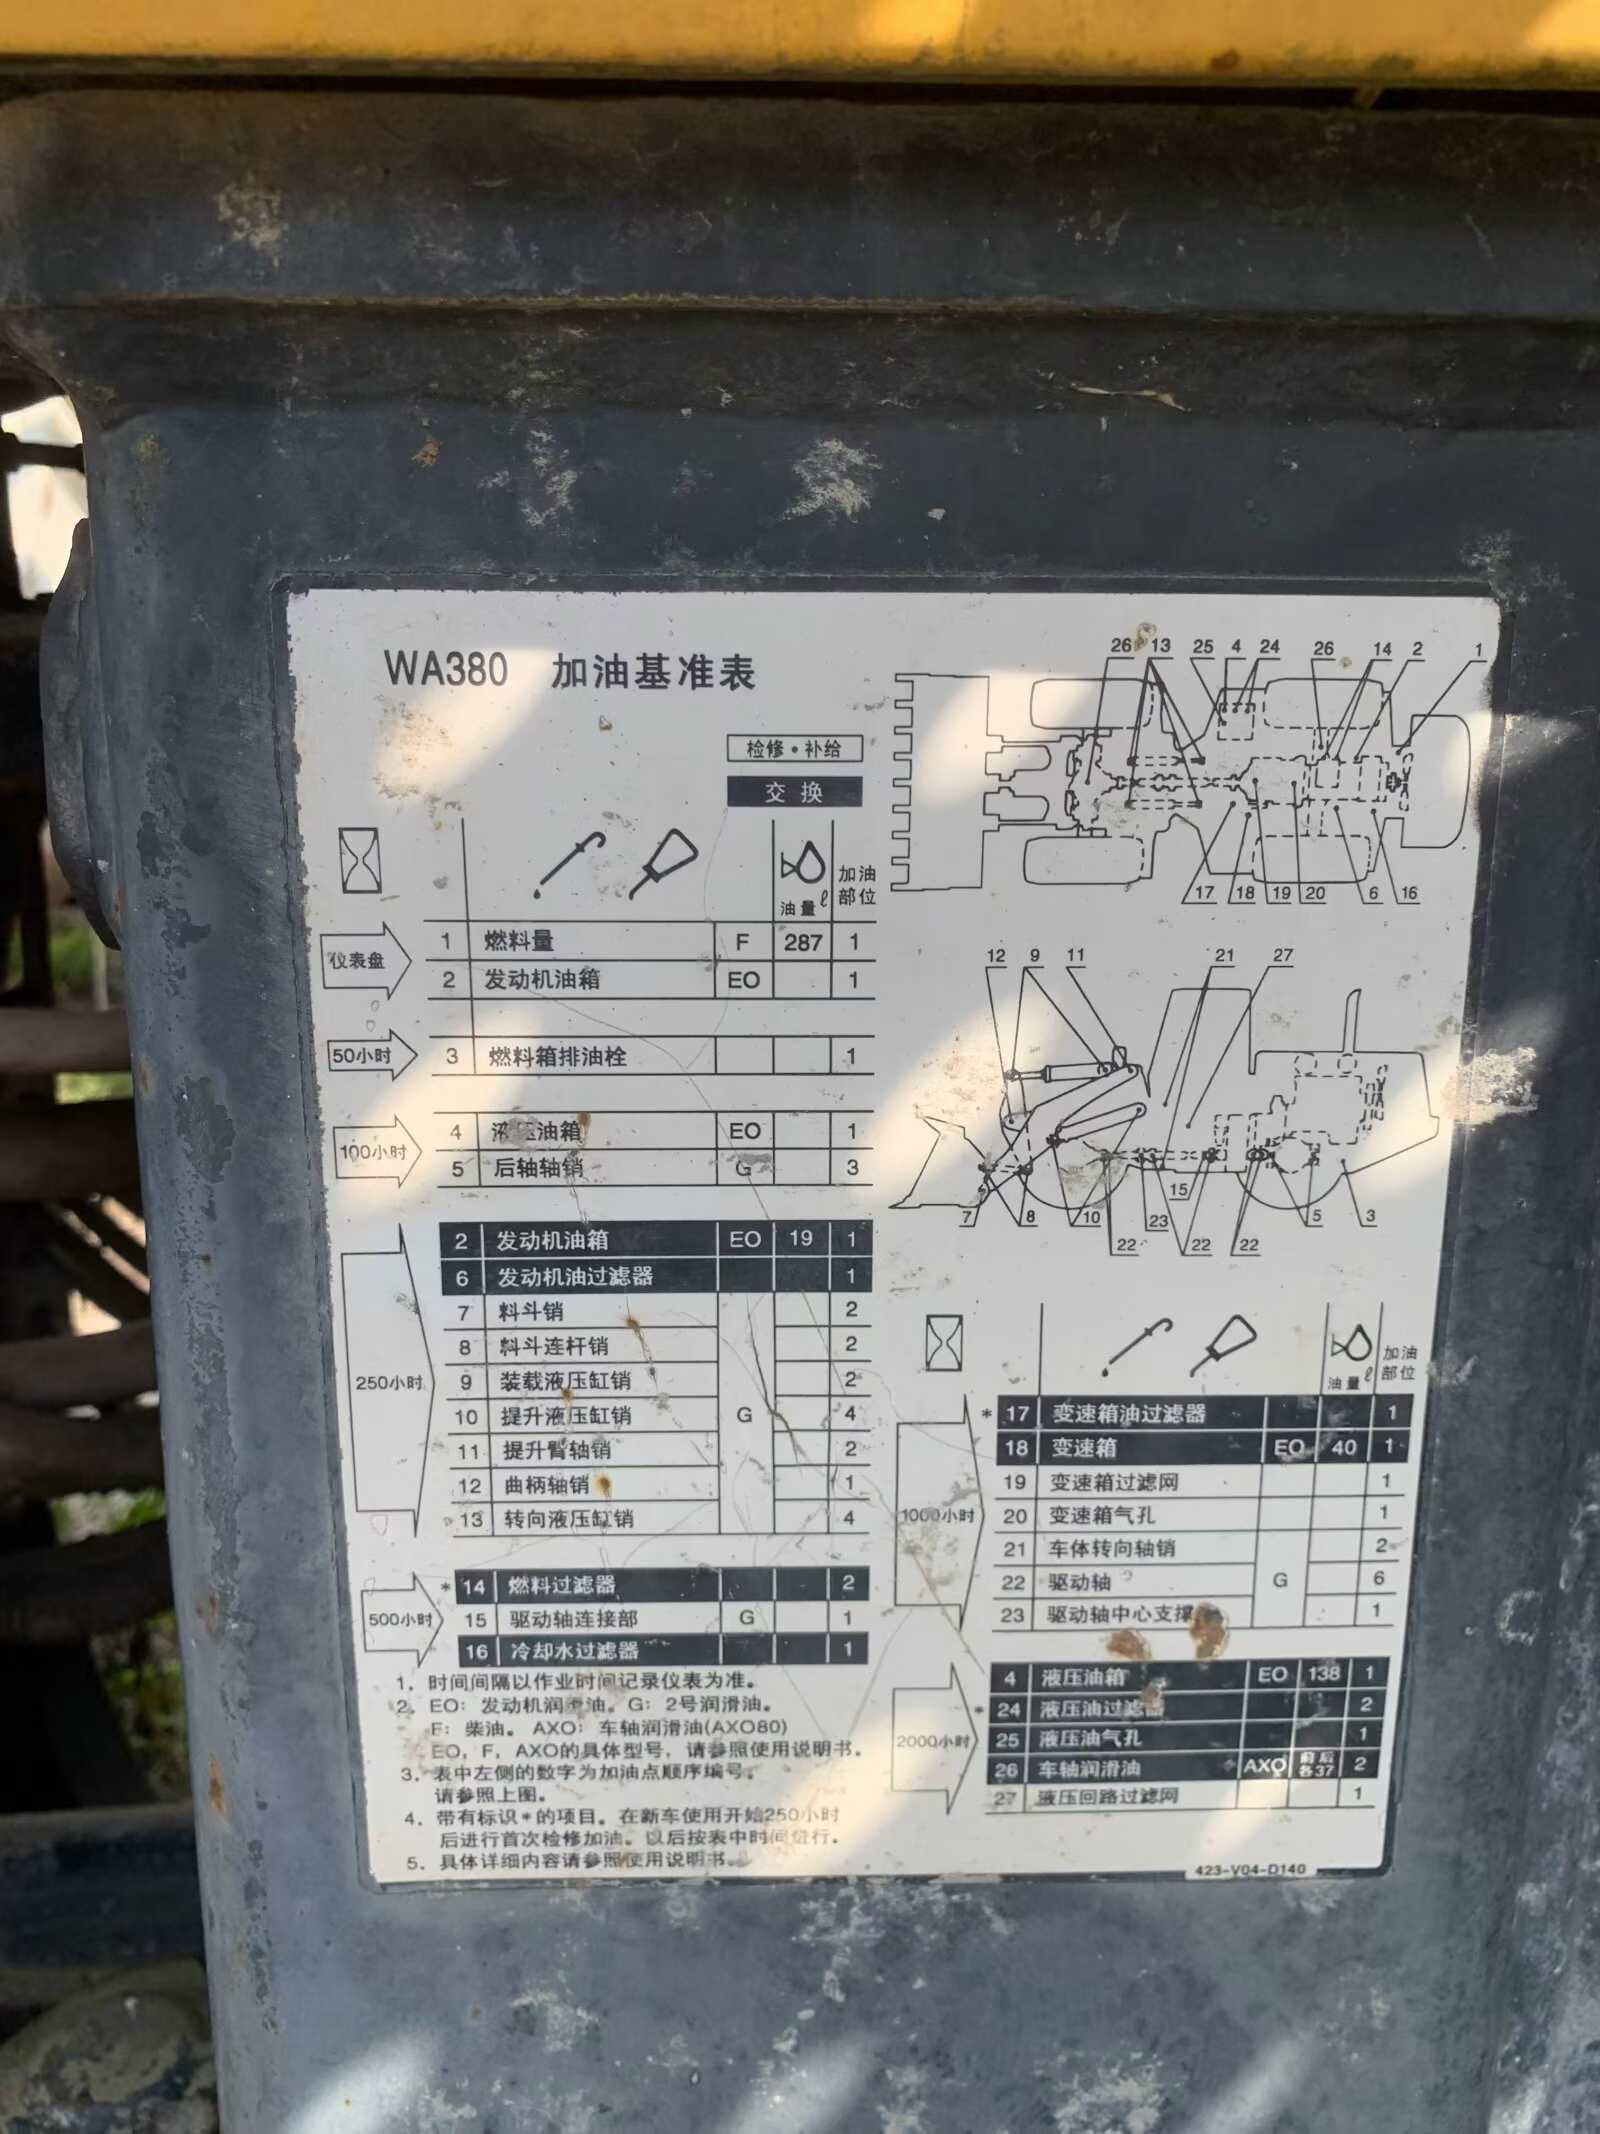 WA380 加油基准表
检修・补给
交换
油量 ℓ 加油部位
仪表盘
1 燃料量 F 287 1
2 发动机油箱 EO 1
50小时
3 燃料箱排油栓 1
100小时
4 液压油箱 EO 1
5 后轴轴销 G 3
250小时
2 发动机油箱 EO 19 1
6 发动机油过滤器 1
7 料斗销 2
8 料斗连杆销 2
9 装载液压缸销 2
10 提升液压缸销 G 4
11 提升臂轴销 2
12 曲柄轴销 1
13 转向液压缸销 4
500小时
* 14 燃料过滤器 2
15 驱动轴连接部 G 1
16 冷却水过滤器 1
1. 时间间隔以作业时间记录仪表为准。
2. EO：发动机润滑油。G：2号润滑油。
F：柴油。AXO：车轴润滑油(AXO80)
EO，F，AXO的具体型号，请参照使用说明书。
3. 表中左侧的数字为加油点顺序编号。
请参照上图。
4. 带有标识*的项目。在新车使用开始250小时
后进行首次检修加油。以后按表中时间进行。
5. 具体详细内容请参照使用说明书。
26 13 25 4 24 26 14 2 1
17 18 19 20 6 16
12 9 11 21 27
15
7 8 10 23 5 3
22 22 22
油量 ℓ 加油部位
1000小时
* 17 变速箱油过滤器 1
18 变速箱 EO 40 1
19 变速箱过滤网 1
20 变速箱气孔 1
21 车体转向轴销 2
22 驱动轴 G 6
23 驱动轴中心支撑 1
2000小时
4 液压油箱 EO 138 1
* 24 液压油过滤器 2
25 液压油气孔 1
26 车轴润滑油 AXO 前后各37 2
27 液压回路过滤网 1
423-V04-D140